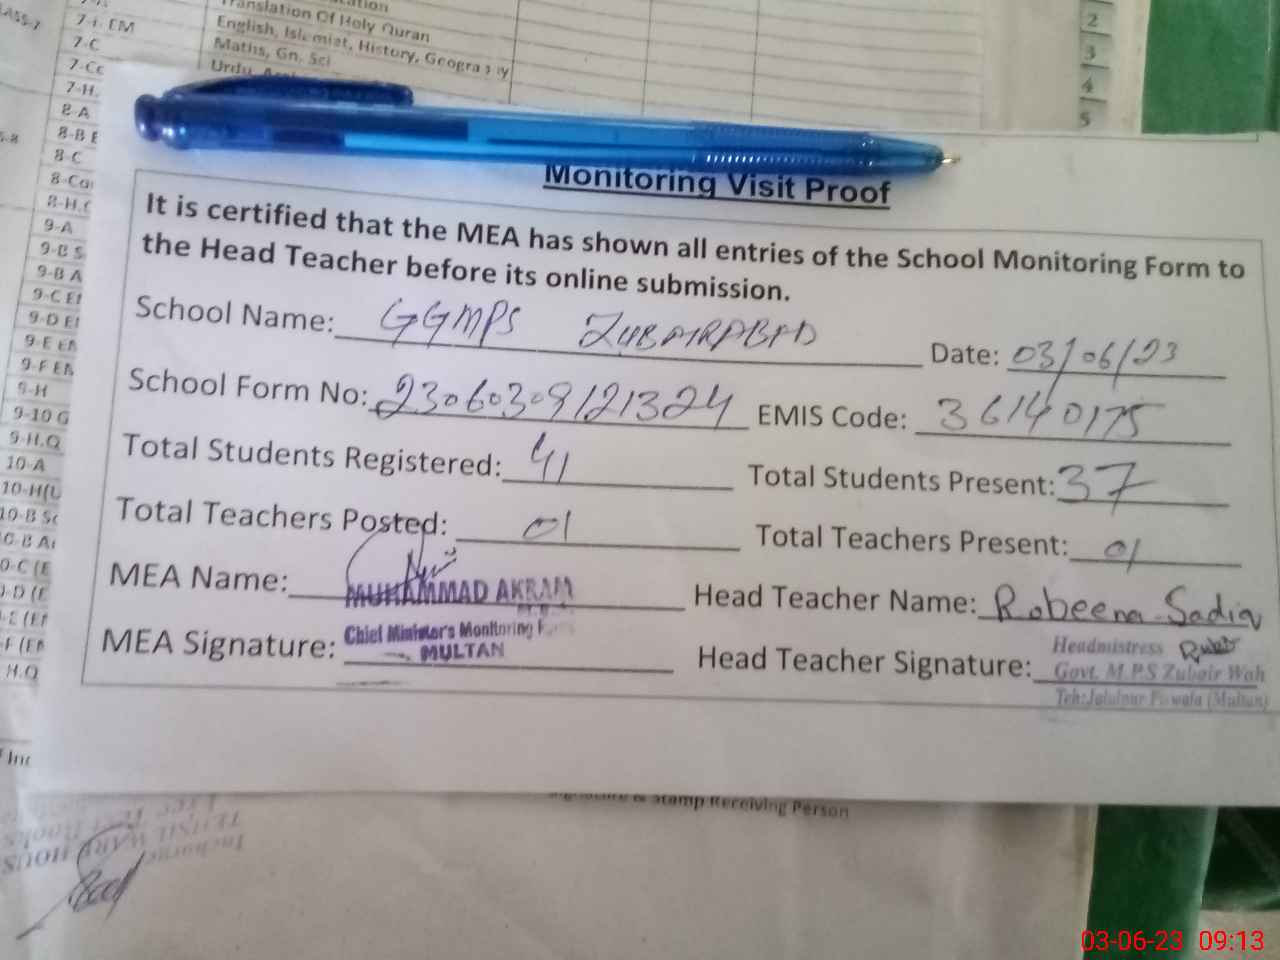 Translation Of Holy Quran
7-C
8-A
8-B E
8-C
9-A
9-B S
9-B A
9-H
9-10 G
9-H.Q
10-A
2
3
4
5
Monitoring Visit Proof
It is certified that the MEA has shown all entries of the School Monitoring Form to
the Head Teacher before its online submission.
School Name: GGMPS ZUBAIRABAD Date: 03/06/23
School Form No: 23060309121324 EMIS Code: 36140175
Total Students Registered: 41 Total Students Present: 37
Total Teachers Posted: 01 Total Teachers Present: 01
MEA Name: MUHAMMAD AKRAM Head Teacher Name: Robeena Sadiq
MEA Signature: Chief Minister's Monitoring
MULTAN
Head Teacher Signature: Headmistress
Govt. M.P.S Zubair Wah
Teh: Jalalpur Pirwala (Multan)
H.Q
Signature & Stamp Receiving Person
03-06-23 09:13